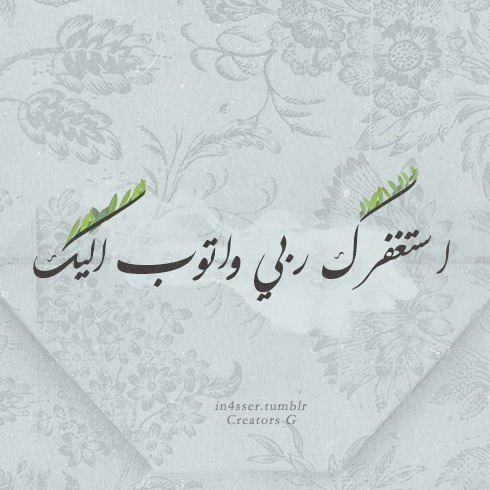 استغفرك ربي واتوب اليك
in4sser.tumblr
Creators G